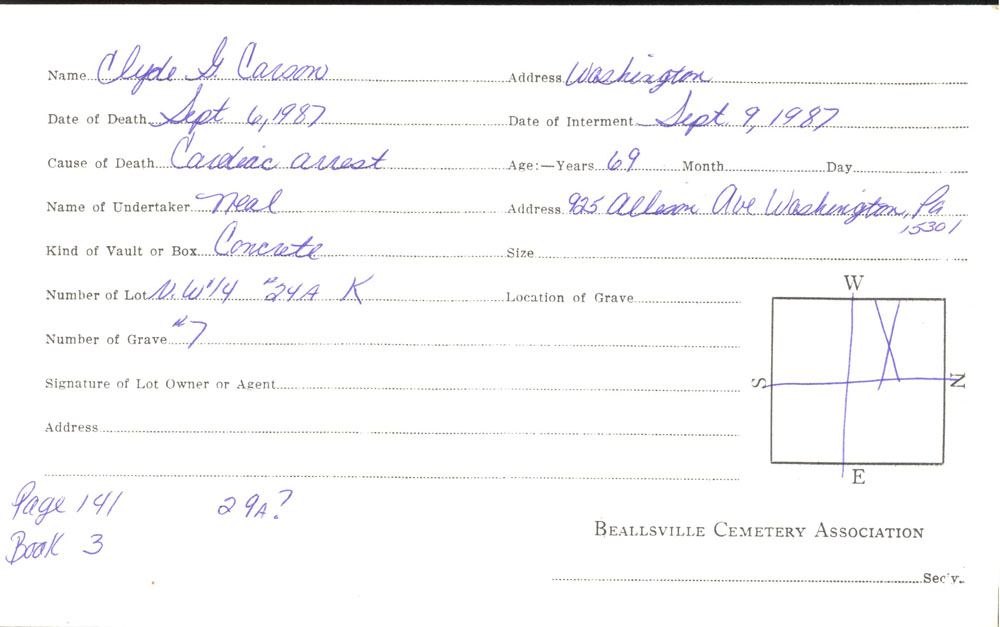 Name Clyde G. Carson Address Washington
Date of Death Sept 6, 1987 Date of Interment Sept. 9, 1987
Cause of Death Cardiac arrest Age:—Years 69 Month Day
Name of Undertaker Neal Address 925 Allison Ave Washington, Pa
15301
Kind of Vault or Box Concrete Size
Number of Lot N.W 1/4 #24A K Location of Grave
W
Number of Grave #7
Signature of Lot Owner or Agent
S N
Address
E
Page 141 29A?
Book 3
BEALLSVILLE CEMETERY ASSOCIATION
Sec'y.